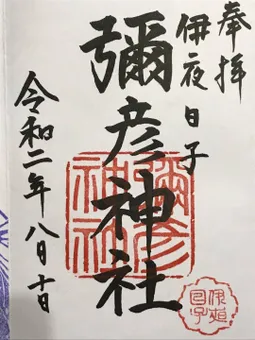 奉拝
伊夜日子
彌彦神社
令和二年八月十日
彌彦
神社